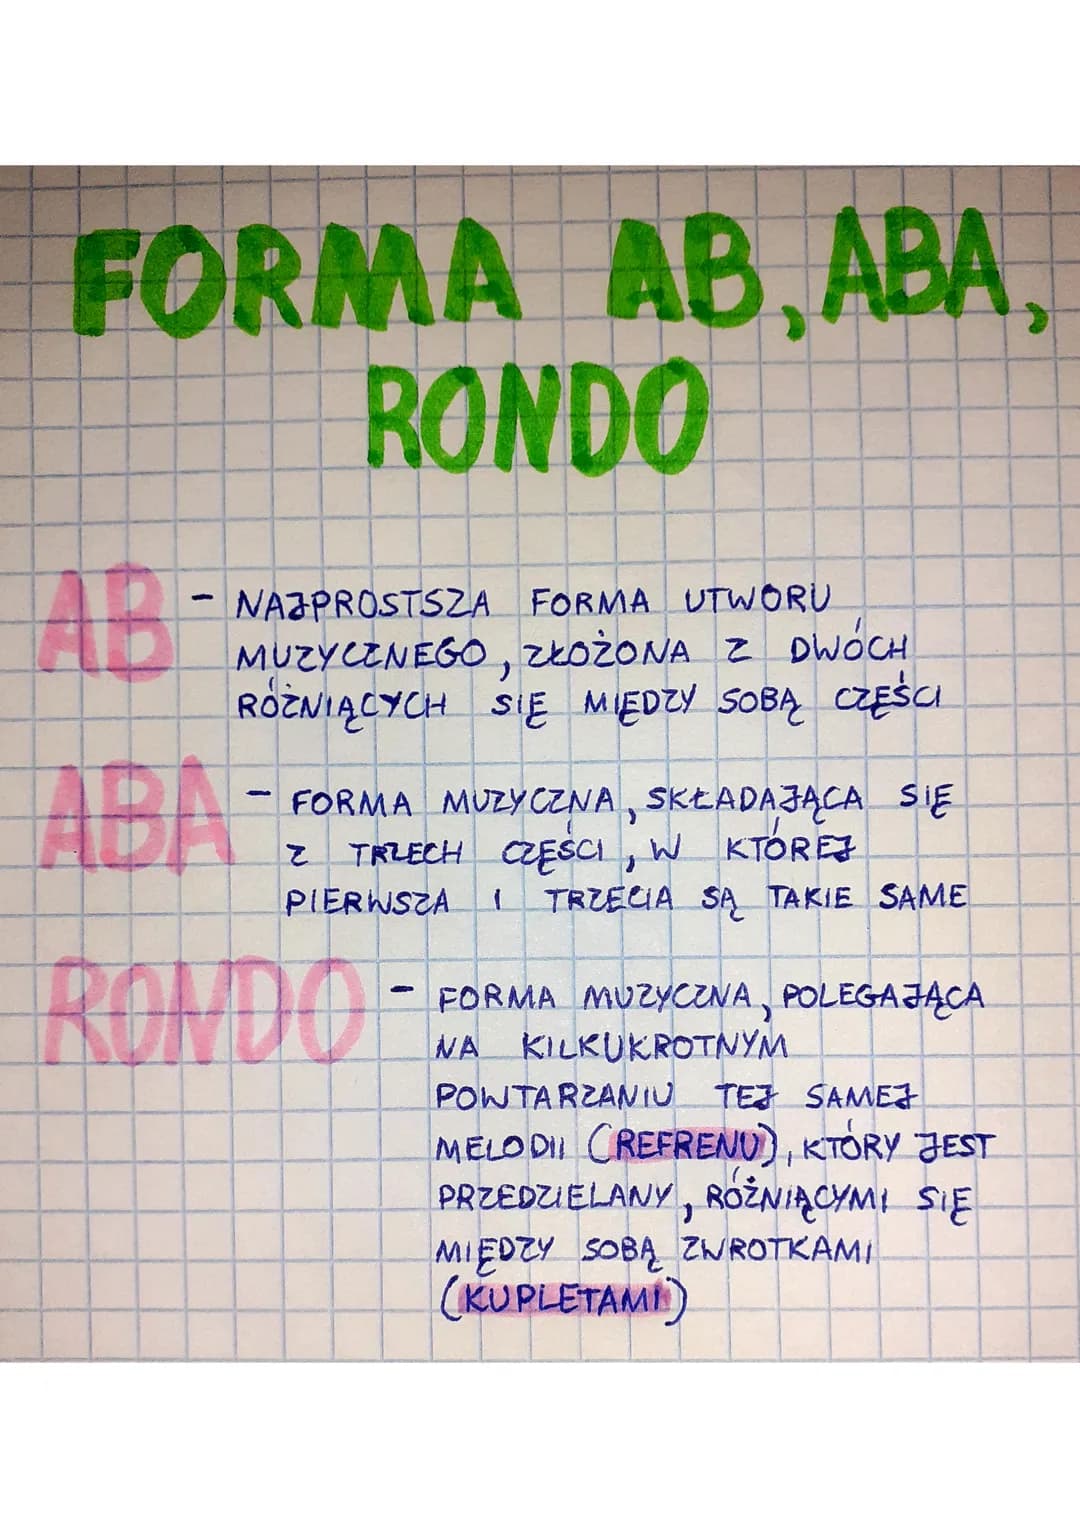 FORMA AB, ABA,
RONDO
AB - NAJPROSTSZA FORMA UTWORU
MUZYCZNEGO, ZŁOŻONA Z DWÓCH
RÓŻNIĄCYCH SIĘ MIĘDZY SOBĄ CZĘŚCI
ABA - FORMA MUZYCZNA, SKŁADAJĄCA SIĘ
Z TRZECH CZĘŚCI, W KTÓREJ
PIERWSZA I TRZECIA SĄ TAKIE SAME
RONDO - FORMA MUZYCZNA, POLEGAJĄCA
NA KILKUKROTNYM
POWTARZANIU TEJ SAMEJ
MELODII (REFRENU), KTÓRY JEST
PRZEDZIELANY, RÓŻNIĄCYMI SIĘ
MIĘDZY SOBĄ ZWROTKAMI
(KUPLETAMI)